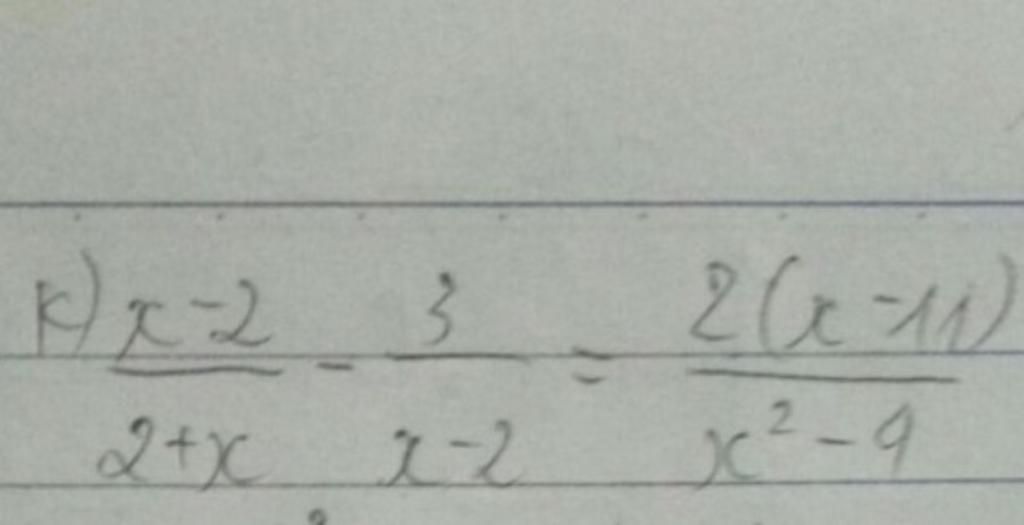 k) \frac{x-2}{2+x} - \frac{3}{x-2} = \frac{2(x-11)}{x^2-9}